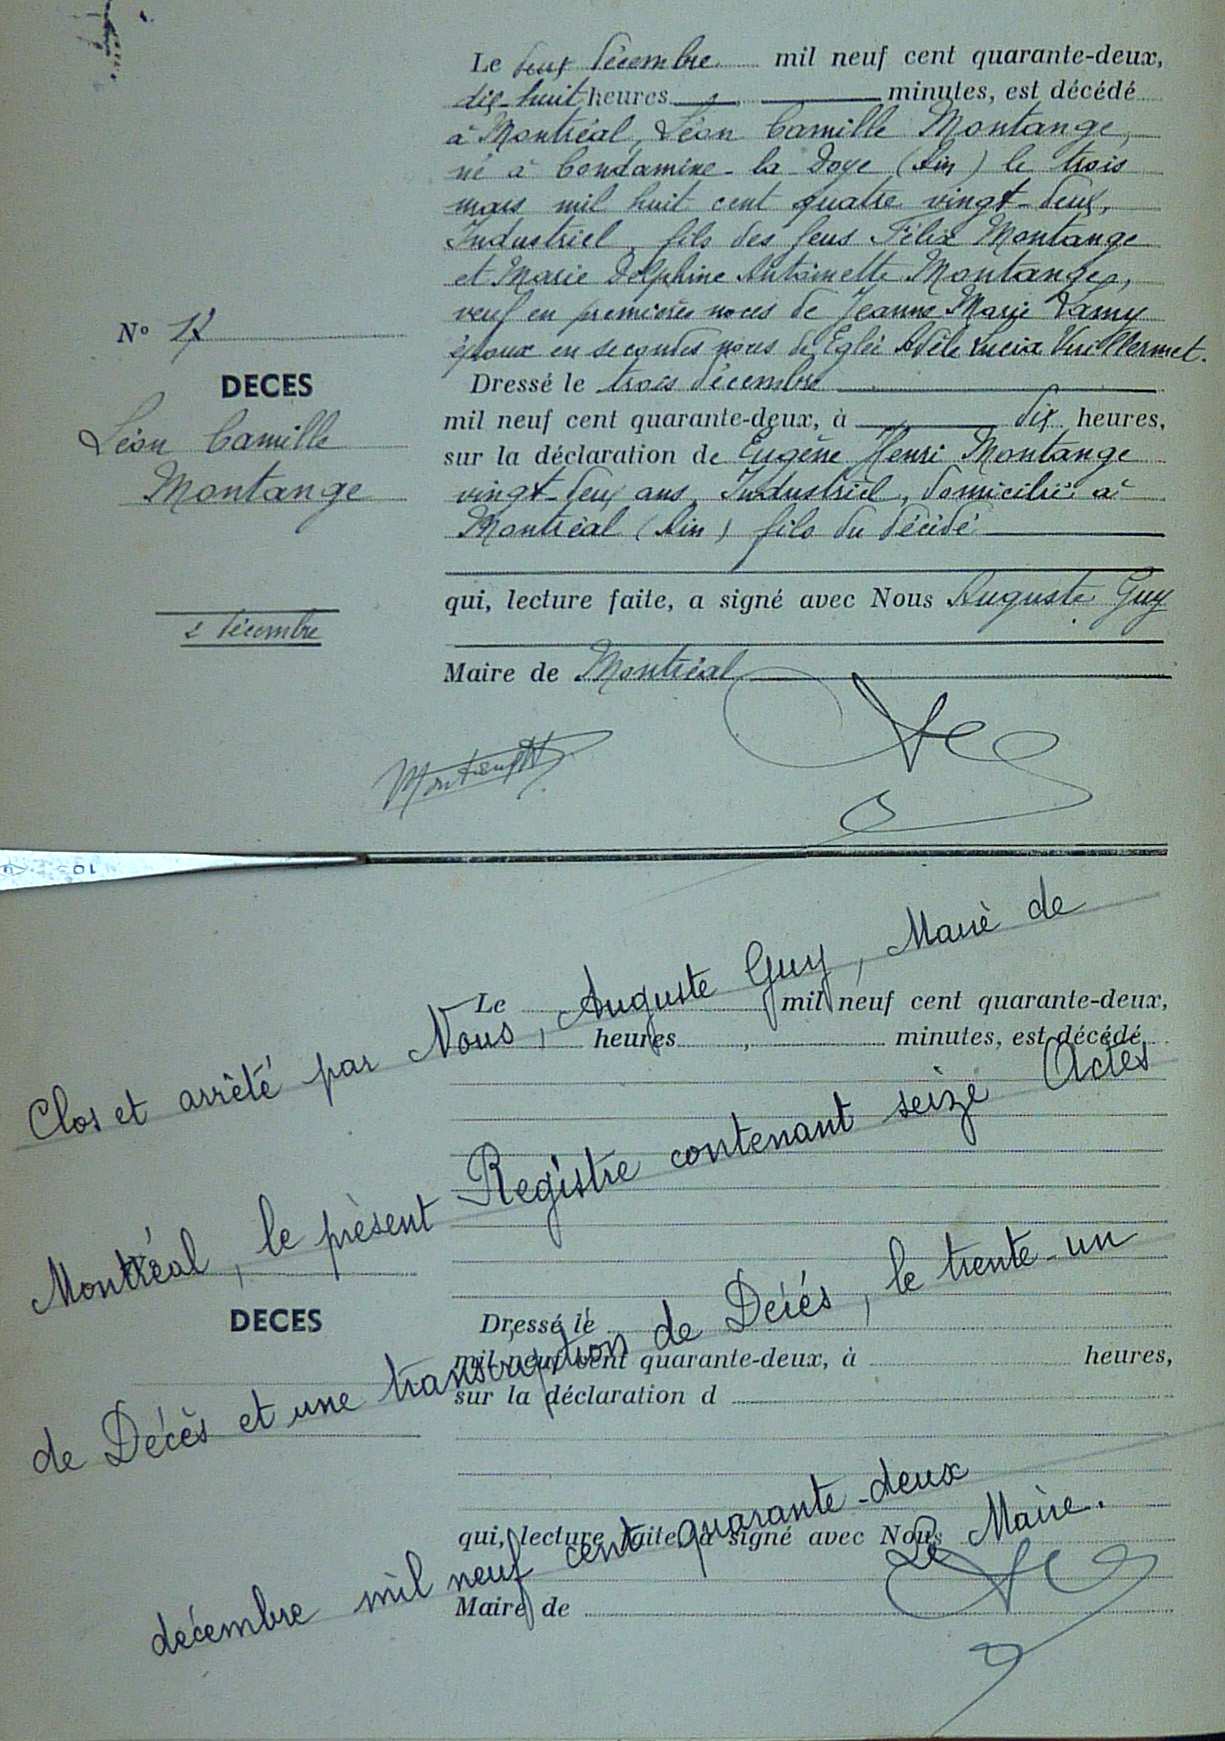 Le deux décembre mil neuf cent quarante-deux,
dix-huit heures , minutes, est décédé
à Montréal, Léon Camille Montange,
né à Condamine-la Doye (Ain) le trois
mars mil huit cent quatre vingt-deux,
Industriel, fils des feus Félix Montange
et Marie Delphine Antoinette Montange,
veuf en premières noces de Jeanne Marie Lamy
époux en secondes noces de Eglée Adèle Lucia Vuillermet.
N° 17
DECES
Léon Camille
Montange
2 décembre
Dressé le trois décembre
mil neuf cent quarante-deux, à dix heures,
sur la déclaration de Eugène Henri Montange
vingt-deux ans, Industriel, domicilié à
Montréal (Ain) fils du décédé
qui, lecture faite, a signé avec Nous Auguste Guy
Maire de Montréal
10
Clos et arrêté par Nous, Auguste Guy, Maire de
Montréal, le présent Registre contenant seize Actes
de Décès et une transcription de Décés, le trente-un
décembre mil neuf cent quarante-deux
Le Maire.
Le mil neuf cent quarante-deux,
heures , minutes, est décédé
DECES
Dressé le
mil neuf cent quarante-deux, à heures,
sur la déclaration d
qui, lecture faite, a signé avec Nous
Maire de